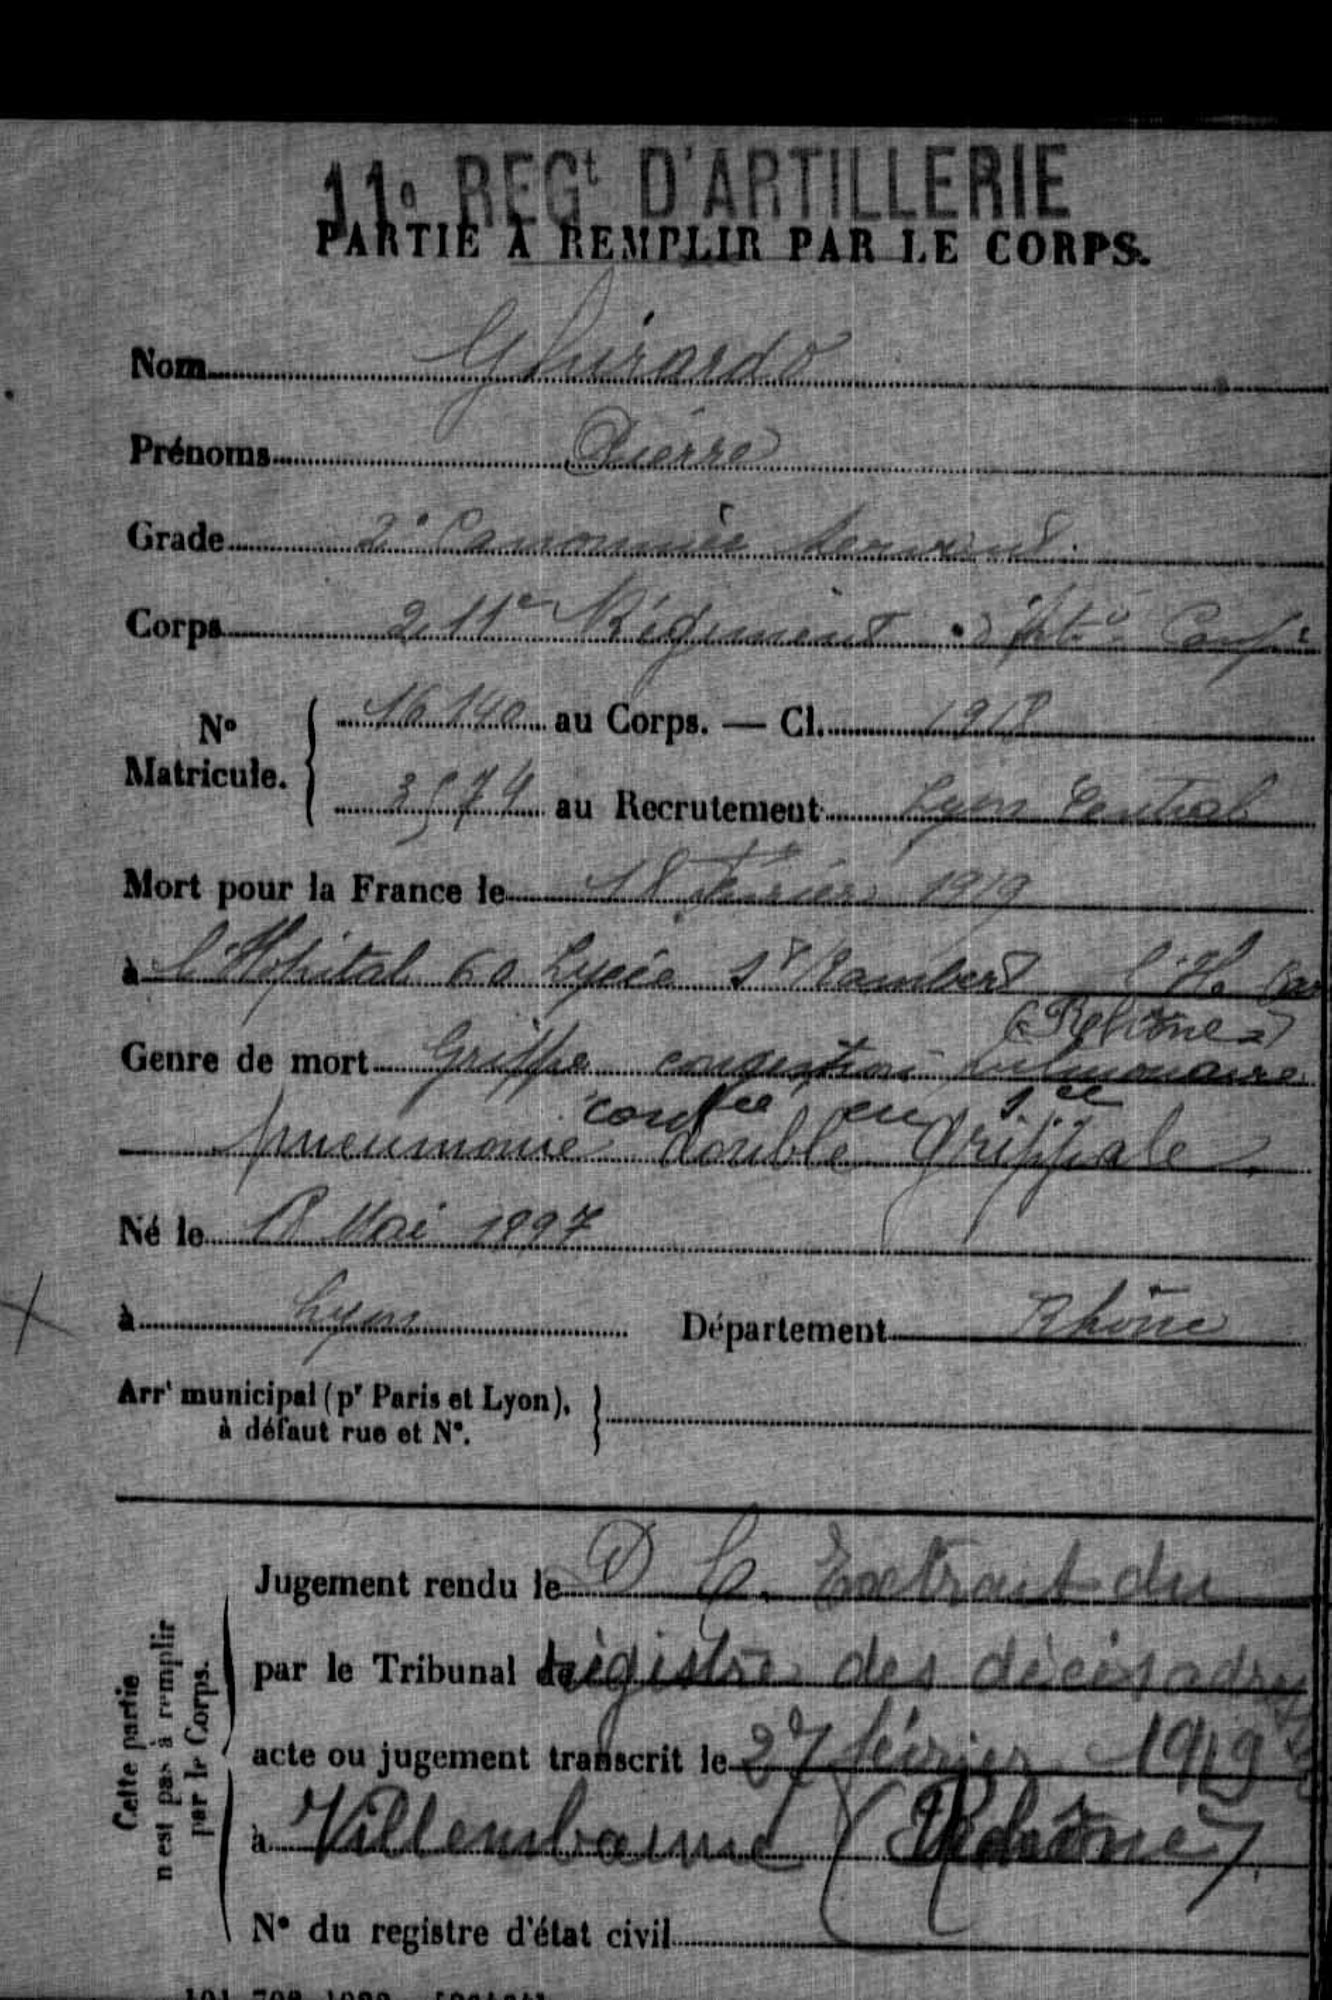 11e REGt D'ARTILLERIE
PARTIE A REMPLIR PAR LE CORPS.
Nom Ghirardo
Prénoms Pierre
Grade 2e Canonnier Servant
Corps 211e Régiment d'Atie Campe
No Matricule. 16140 au Corps. — Cl. 1918
3574 au Recrutement Lyon Central
Mort pour la France le 18 Février 1919
à l'Hôpital 60 Lycée St Rambert l'Ile Bar
(Rhône)
Genre de mort Grippe congestion pulmonaire
contée en sce
pneumonie double grippale
Né le 18 Mai 1897
à Lyon Département Rhône
Arrt municipal (pr Paris et Lyon),
à défaut rue et No.
Cette partie
n'est pas à remplir
par le Corps.
Jugement rendu le D C. Extrait du
par le Tribunal de registre des décès adres
acte ou jugement transcrit le 27 février 1919
à Villeurbanne (Rhône)
No du registre d'état civil